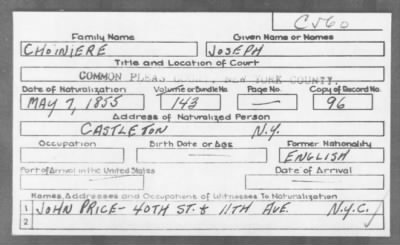 C560
Family Name Given Name or Names
CHOINIERE JOSEPH
Title and Location of Court
COMMON PLEAS COURT, NEW YORK COUNTY.
Date of Naturalization Volume or Bundle No. Page No. Copy of Record No.
MAY 7, 1855 143 — 96
Address of Naturalized Person
CASTLETON N.Y.
Occupation Birth Date or Age Former Nationality
ENGLISH
Port of Arrival in the United States Date of Arrival
Names, Addresses and Occupations of Witnesses To Naturalization
1 JOHN PRICE - 40TH ST. & 11TH AVE. N.Y.C.
2